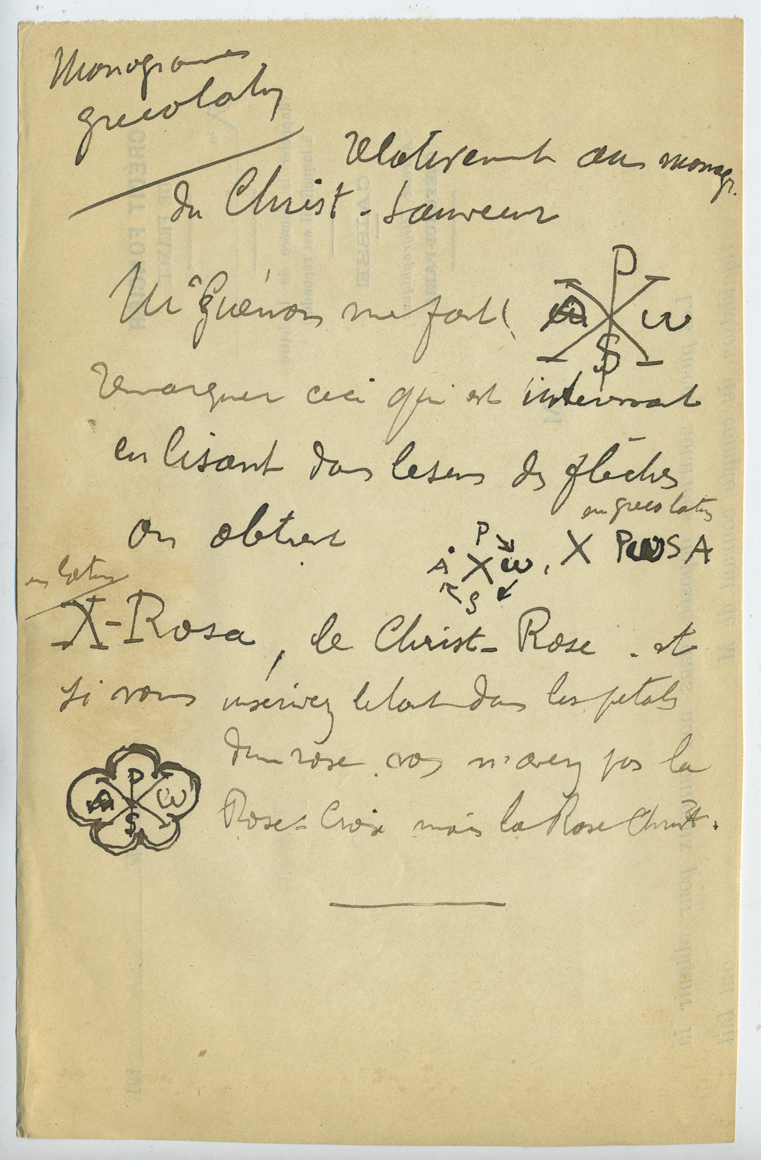 Monogrames
grecolatin
relativement au monogr.
du Christ-Sauveur
Mr Guénon me fait
P
A ω
S
remarquer ceci qui est intéressant
en lisant dans le sens des flèches
en greco latin
on obtient
P
A X ω, X PωSA
S
en latin
X-Rosa, le Christ-Rose. et
si vous inscrivez le tout dans les petals
d'une rose vous n'avez pas la
P
A ω
S
Rose-Croix mais la Rose Christ.